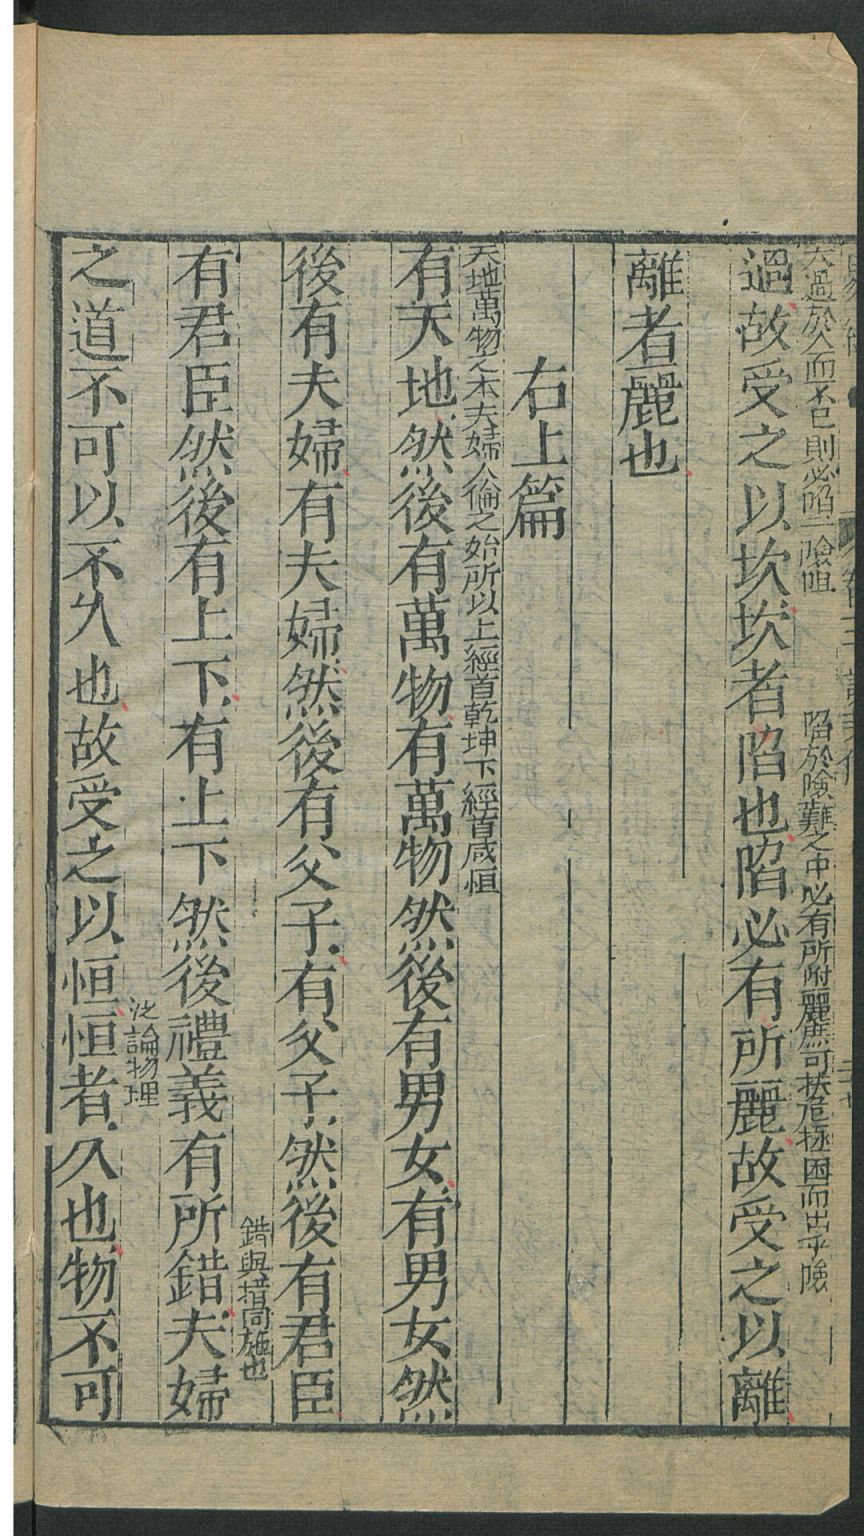 大過於人而不已則必陷於險阻
陷於險難之中必有所附麗庶可扶危拯困而出乎險
過故受之以坎坎者陷也陷必有所麗故受之以離
離者麗也
右上篇
天地萬物之本夫婦人倫之始所以上經首乾坤下經首咸恒
有天地然後有萬物有萬物然後有男女有男女然
後有夫婦有夫婦然後有父子有父子然後有君臣
錯與措同施也
有君臣然後有上下有上下然後禮義有所錯夫婦
泛論物理
之道不可以不久也故受之以恒恒者久也物不可